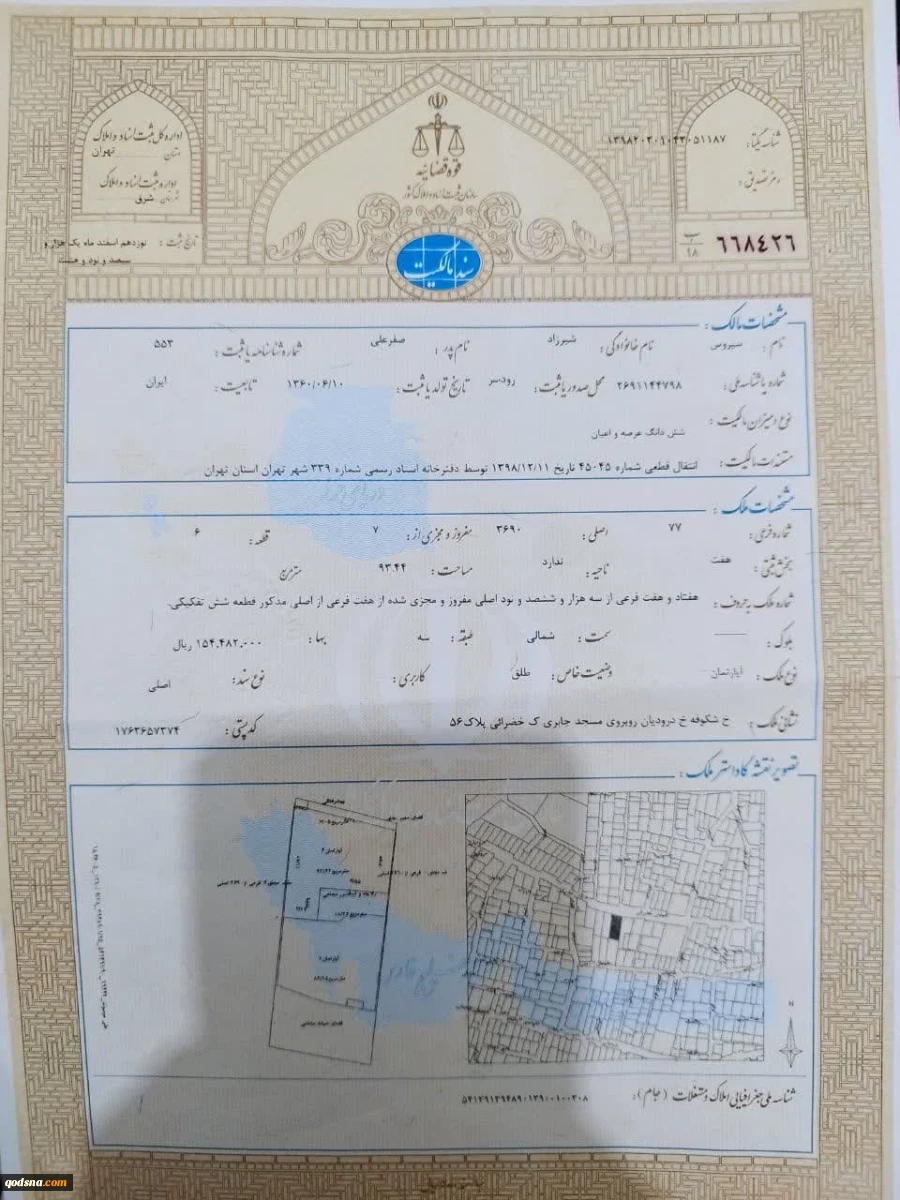 قوه قضائیه
سازمان ثبت اسناد و املاک کشور
اداره کل ثبت اسناد و املاک
استان تهران
اداره ثبت اسناد و املاک
شهرستان شرق
تاریخ ثبت : نوزدهم اسفند ماه یک هزار و
سیصد و نود و هشت
شناسه یکتا : ۱۳۹۸۲۰۳۰۱۰۴۳۰۵۱۱۸۷
رمز تصدیق :
ب
۹۸
۶۶۸۴۲۶
سند مالکیت
مشخصات مالک :
نام : سیروس نام خانوادگی : شیرزاد نام پدر : صفرعلی شماره شناسنامه یا ثبت : ۵۵۳
شماره یا شناسه ملی : ۲۶۹۱۱۴۴۷۹۸ محل صدور یا ثبت : رودسر تاریخ تولد یا ثبت : ۱۳۶۰/۰۶/۱۰ تابعیت : ایران
نوع و میزان مالکیت : شش دانگ عرصه و اعیان
مستندات مالکیت : انتقال قطعی شماره ۴۵۰۴۵ تاریخ ۱۳۹۸/۱۲/۱۱ توسط دفترخانه اسناد رسمی شماره ۳۳۹ شهر تهران استان تهران
مشخصات ملک :
شماره فرعی : ۷۷ اصلی : ۳۶۹۰ مفروز و مجزی از : ۷ قطعه : ۶
بخش ثبتی : هفت ناحیه : ندارد مساحت : ۹۳.۴۴ مترمربع
شماره ملک به حروف : هفتاد و هفت فرعی از سه هزار و ششصد و نود اصلی مفروز و مجزی شده از هفت فرعی از اصلی مذکور قطعه شش تفکیکی.
بلوک : سمت : شمالی طبقه : سه بها : ۱۵۴,۴۸۲,۰۰۰ ریال
نوع ملک : آپارتمان وضعیت خاص : طلق کاربری : نوع سند : اصلی
نشانی ملک : خ شکوفه خ درودیان روبروی مسجد جابری ک خضرائی پلاک۵۶ کدپستی : ۱۷۶۳۶۵۷۳۷۴
تصویر نقشه کاداستر ملک :
N
شناسه ملی جغرافیایی املاک و مستغلات (جام) :
qodsna.com